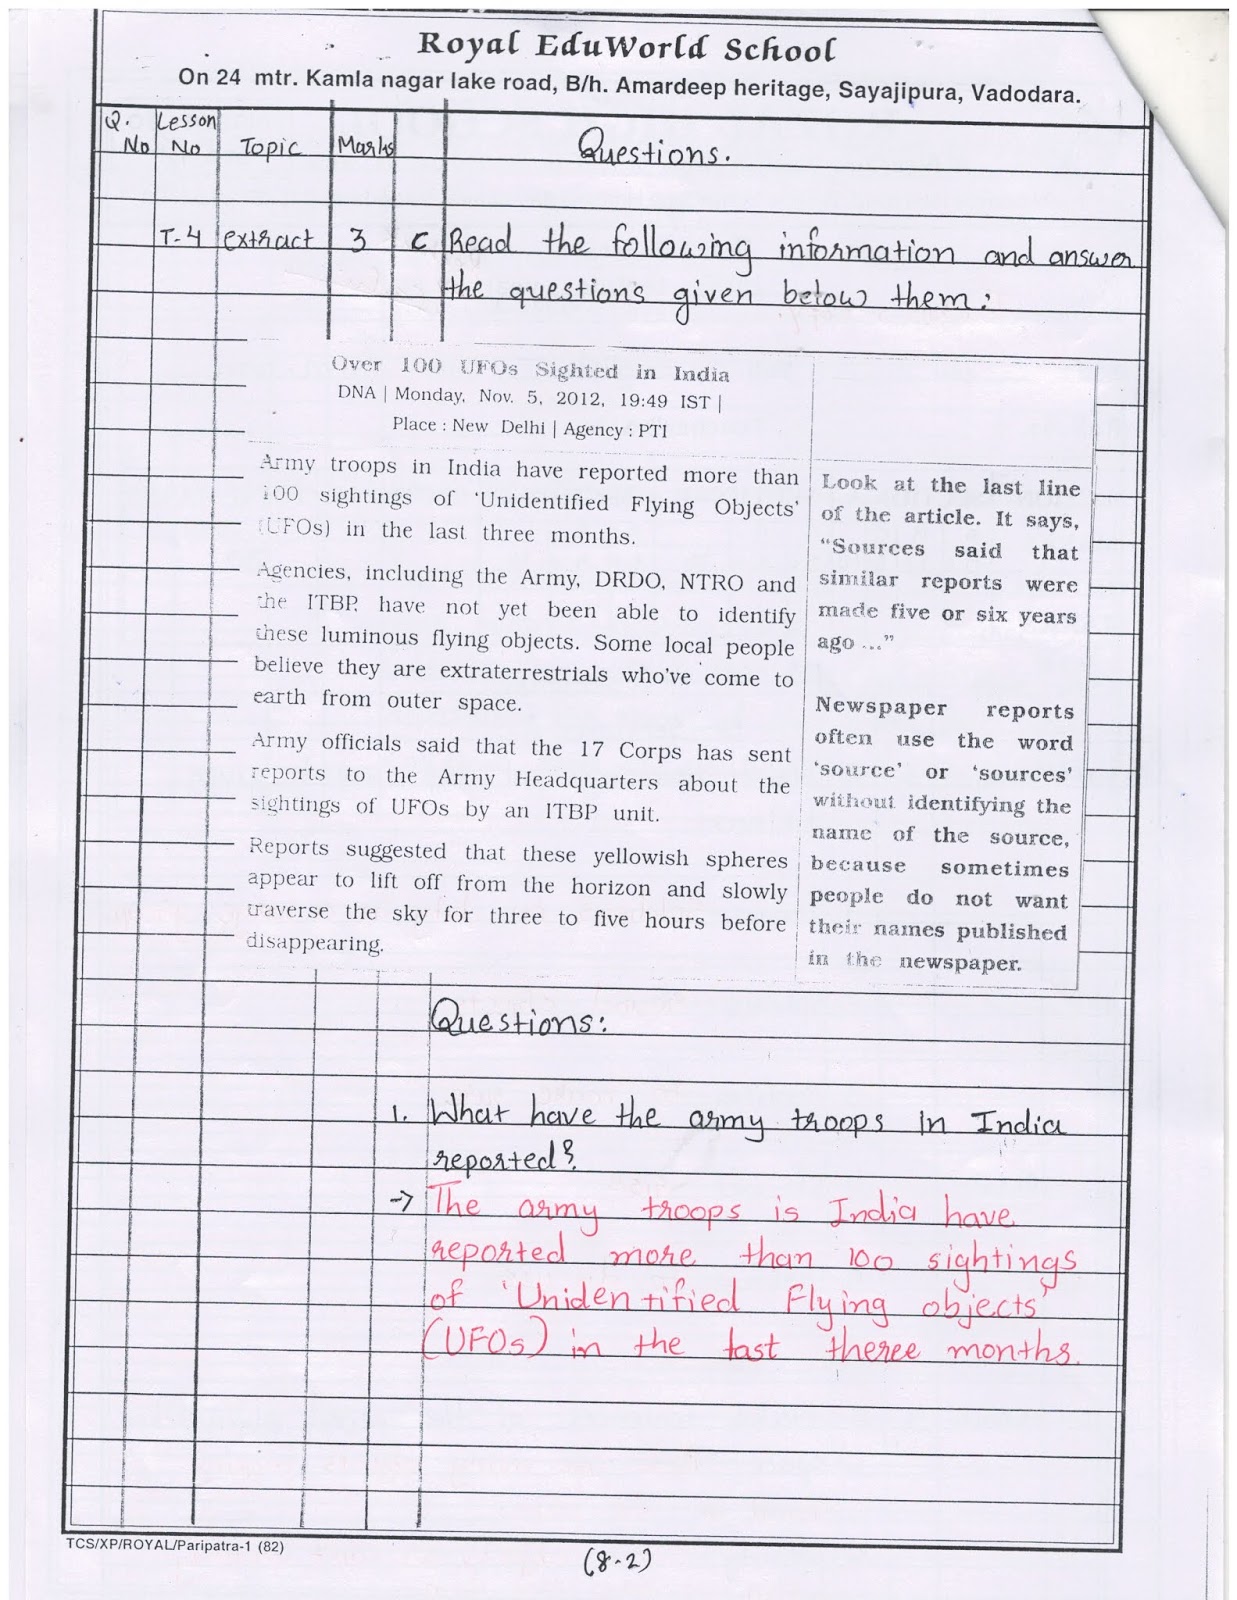 Royal EduWorld School
On 24 mtr. Kamla nagar lake road, B/h. Amardeep heritage, Sayajipura, Vadodara.
Q. No Lesson No Topic Marks Questions.
T-4 extract 3 C Read the following information and answer
the questions given below them:
Over 100 UFOs Sighted in India
DNA | Monday, Nov. 5, 2012, 19:49 IST |
Place : New Delhi | Agency : PTI
Army troops in India have reported more than
100 sightings of 'Unidentified Flying Objects'
(UFOs) in the last three months.
Agencies, including the Army, DRDO, NTRO and
the ITBP, have not yet been able to identify
these luminous flying objects. Some local people
believe they are extraterrestrials who've come to
earth from outer space.
Army officials said that the 17 Corps has sent
reports to the Army Headquarters about the
sightings of UFOs by an ITBP unit.
Reports suggested that these yellowish spheres
appear to lift off from the horizon and slowly
traverse the sky for three to five hours before
disappearing.
Look at the last line
of the article. It says,
"Sources said that
similar reports were
made five or six years
ago ..."
Newspaper reports
often use the word
'source' or 'sources'
without identifying the
name of the source,
because sometimes
people do not want
their names published
in the newspaper.
Questions:
1. What have the army troops in India
reported?
→ The army troops is India have
reported more than 100 sightings
of 'Unidentified Flying objects'
(UFOs) in the last theree months.
TCS/XP/ROYAL/Paripatra-1 (82)
(8.2)